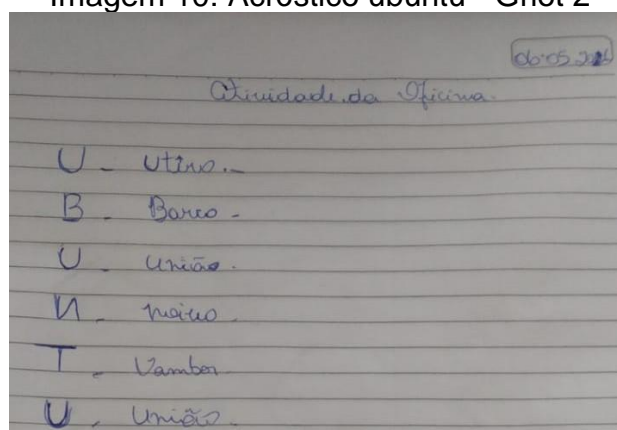 Imagem 10: Acróstico ubuntu - Griot 2
06.05.2024
Atividade da Oficina.
U - Utino.-
B - Barco -
U - União.
N - 
T - Vambor
U - União.